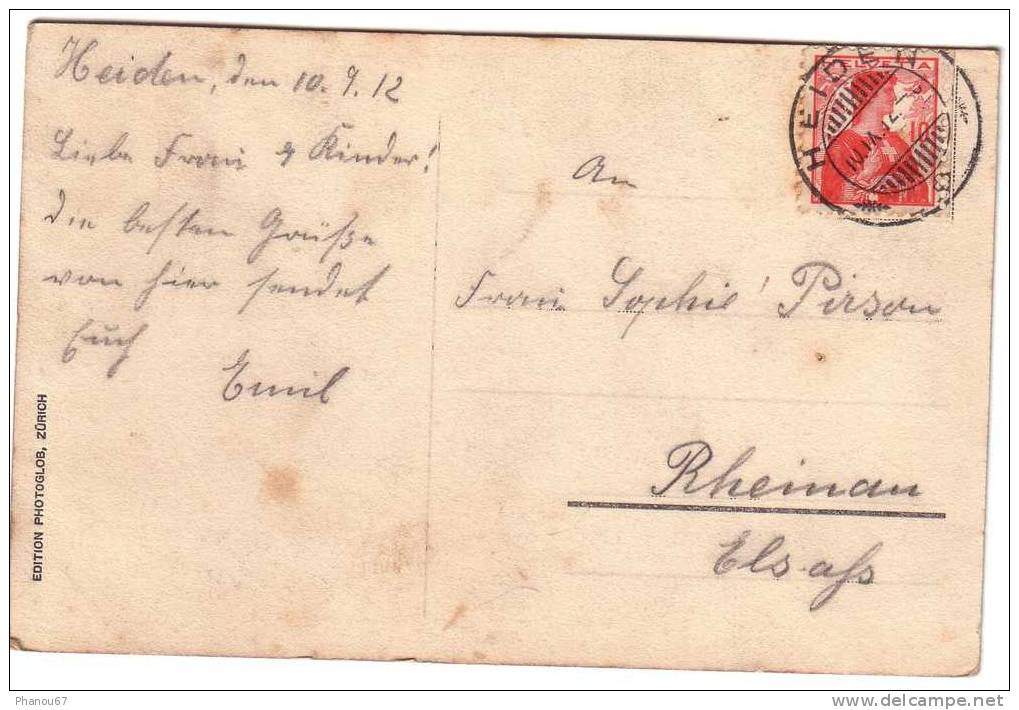 Heiden, den 10.9.12
Liebe Frau & Kinder!
Die besten Grüße
von hier sendet
Euch
Emil
EDITION PHOTOGLOB, ZÜRICH
HELVETIA
10
HEIDEN
10.IX.12.
An
Frau Sophie Pirson
Rheinau
Elsaß
Phanou67
www.delcampe.net